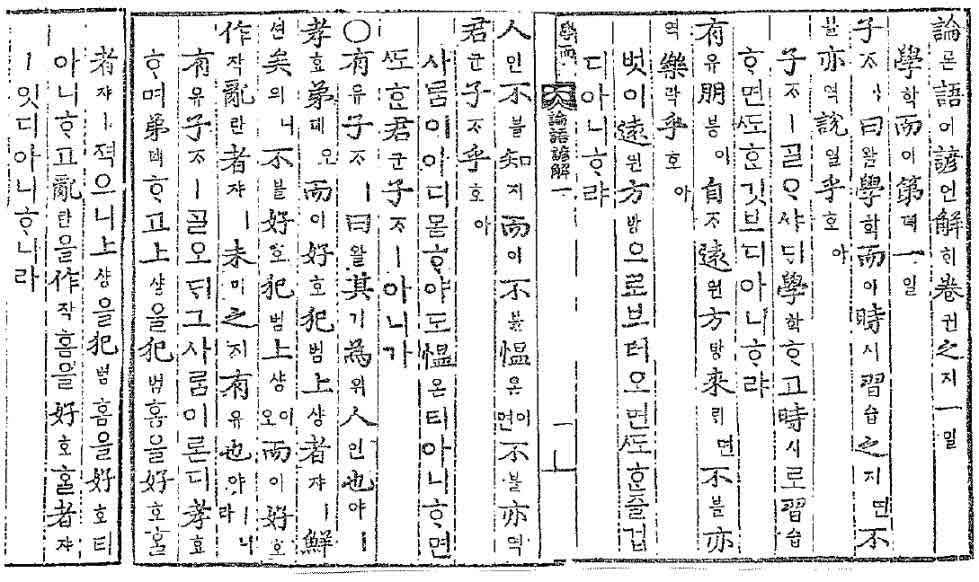 論론語어諺언解ᄒᆡ卷권之지一일
學학而이第뎨一일
子ᄌᆞㅣ曰왈學학而이時시習습之지면不
블亦역說열乎호아
子ᄌᆞㅣᄀᆞᆯᄋᆞ샤ᄃᆡ學학ᄒᆞ고時시로習습
ᄒᆞ면ᄯᅩᄒᆞᆫ깃브디아니ᄒᆞ랴
有유朋붕이自ᄌᆞ遠원方방來ᄅᆡ면不블亦
역樂락乎호아
벗이遠원方방으로브터오면ᄯᅩᄒᆞᆫ즐겁
디아니ᄒᆞ랴
學而
論語諺解一
一
人인不블知지而이不블慍온이면不블亦역
君군子ᄌᆞ乎호아
사ᄅᆞᆷ이아디몯ᄒᆞ야도慍온티아니ᄒᆞ면
ᄯᅩᄒᆞᆫ君군子ᄌᆞㅣ아니가
○有유子ᄌᆞㅣ曰왈其기爲위人인也야ㅣ
孝효弟뎨오而이好호犯범上샹者쟈ㅣ鮮
션矣의니不블好호犯범上샹이오而이好호
作작亂란者쟈ㅣ未미之지有유也야ㅣ니라
有유子ᄌᆞㅣᄀᆞᆯ오ᄃᆡ그사ᄅᆞᆷ이론디孝효
ᄒᆞ며弟뎨ᄒᆞ고上샹을犯범홈을好호ᄒᆞᆯ
者쟈ㅣ젹으니上샹을犯범홈을好호티
아니ᄒᆞ고亂란을作작홈을好호ᄒᆞᆯ者쟈
ㅣ잇디아니ᄒᆞ니라